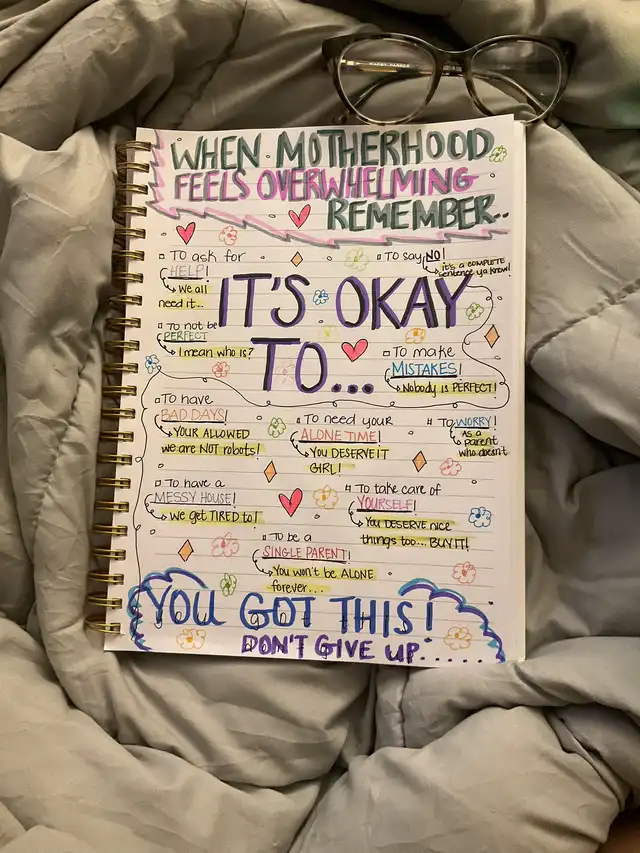 WHEN MOTHERHOOD
FEELS OVERWHELMING
REMEMBER..
To ask for
HELP!
We all
need it...
To say NO!
it's a COMPLETE
sentence ya know!
IT'S OKAY
TO...
To not be
PERFECT
I mean who is?
To make
MISTAKES!
Nobody is PERFECT!
To have
BAD DAYS!
YOUR ALLOWED
we are NOT robots!
To need your
ALONE TIME!
YOU DESERVE IT
GIRL!
To WORRY!
As a
parent
who doesn't
To have a
MESSY HOUSE!
We get TIRED to!
To take care of
YOURSELF!
You DESERVE nice
things too... BUY IT!
To be a
SINGLE PARENT!
You won't be ALONE
forever...
YOU GOT THIS!
DON'T GIVE UP.....